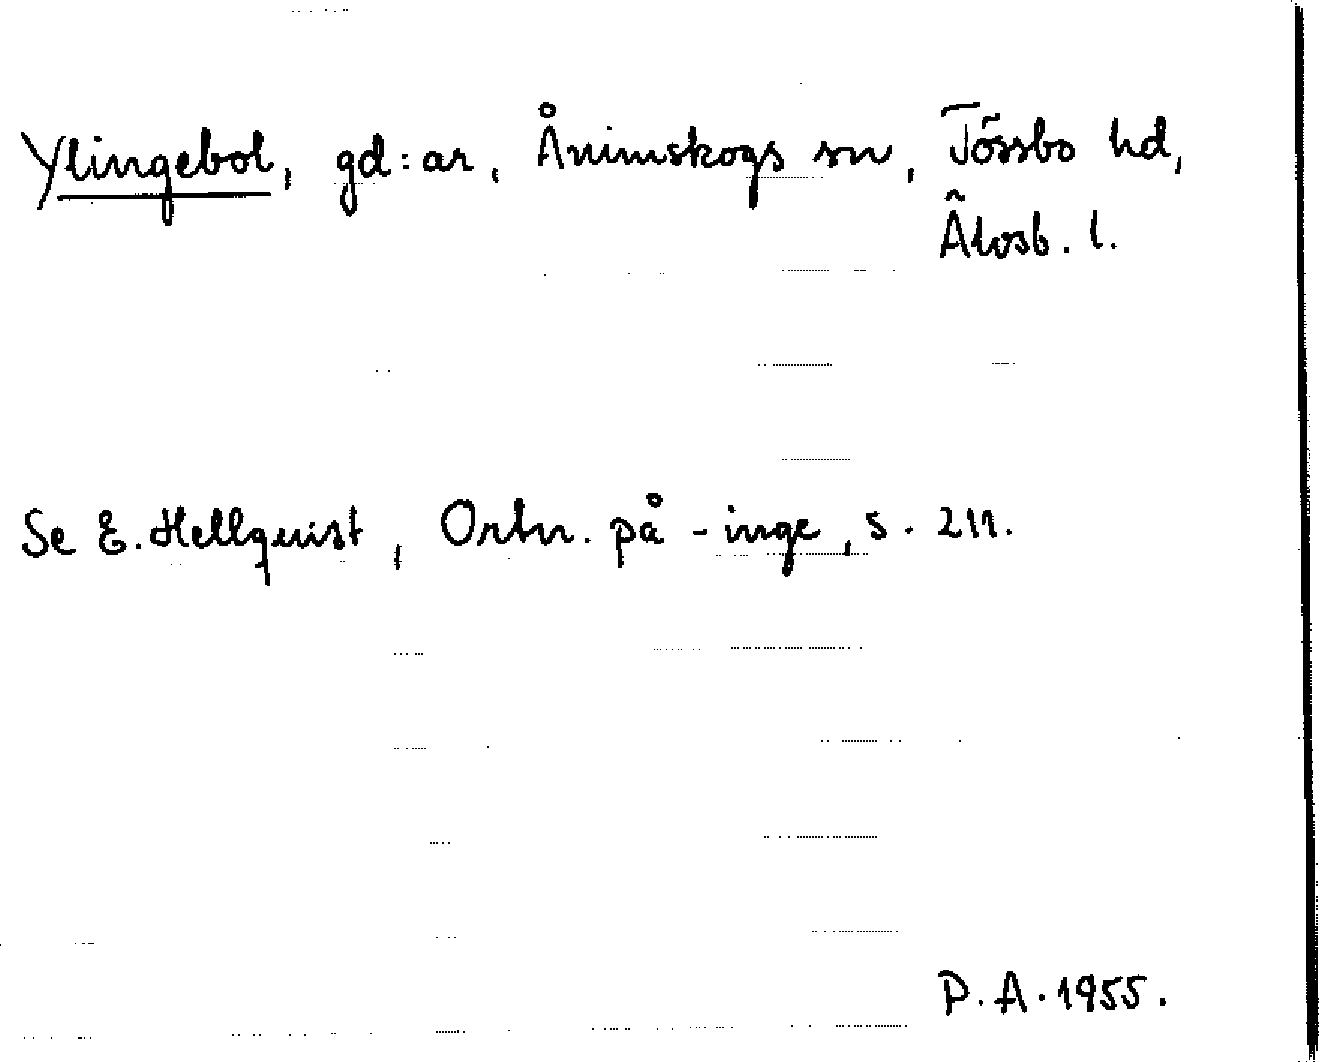 Ylingebol, gd:ar, Ånimskogs sn, Tössbo hd,
Älvsb. l.
Se E. Hellquist, Ortn. på -inge, s. 211.
P. A. 1955.